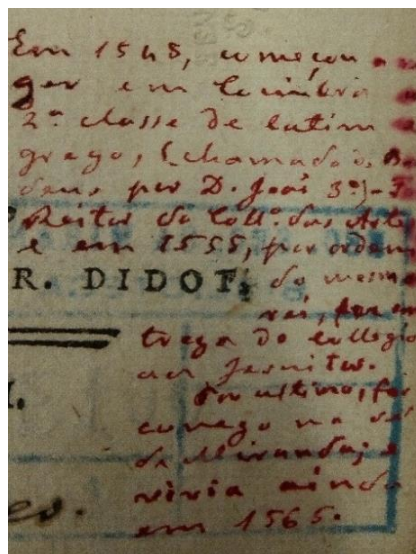 Em 1548, começou a
ger em Coimbra
2ª classe de latim
grego, (chamado d. Bo
deus por D. João 3º)-F
Reitor do Collº das Arte
e em 1555, por ordem
R. DIDOT, do mesm
rei, fez en
trega do collegio
aos Jesuitas.
Por ultimo, foi
conego na sé
de Miranda; e
vivia ainda
em 1565.